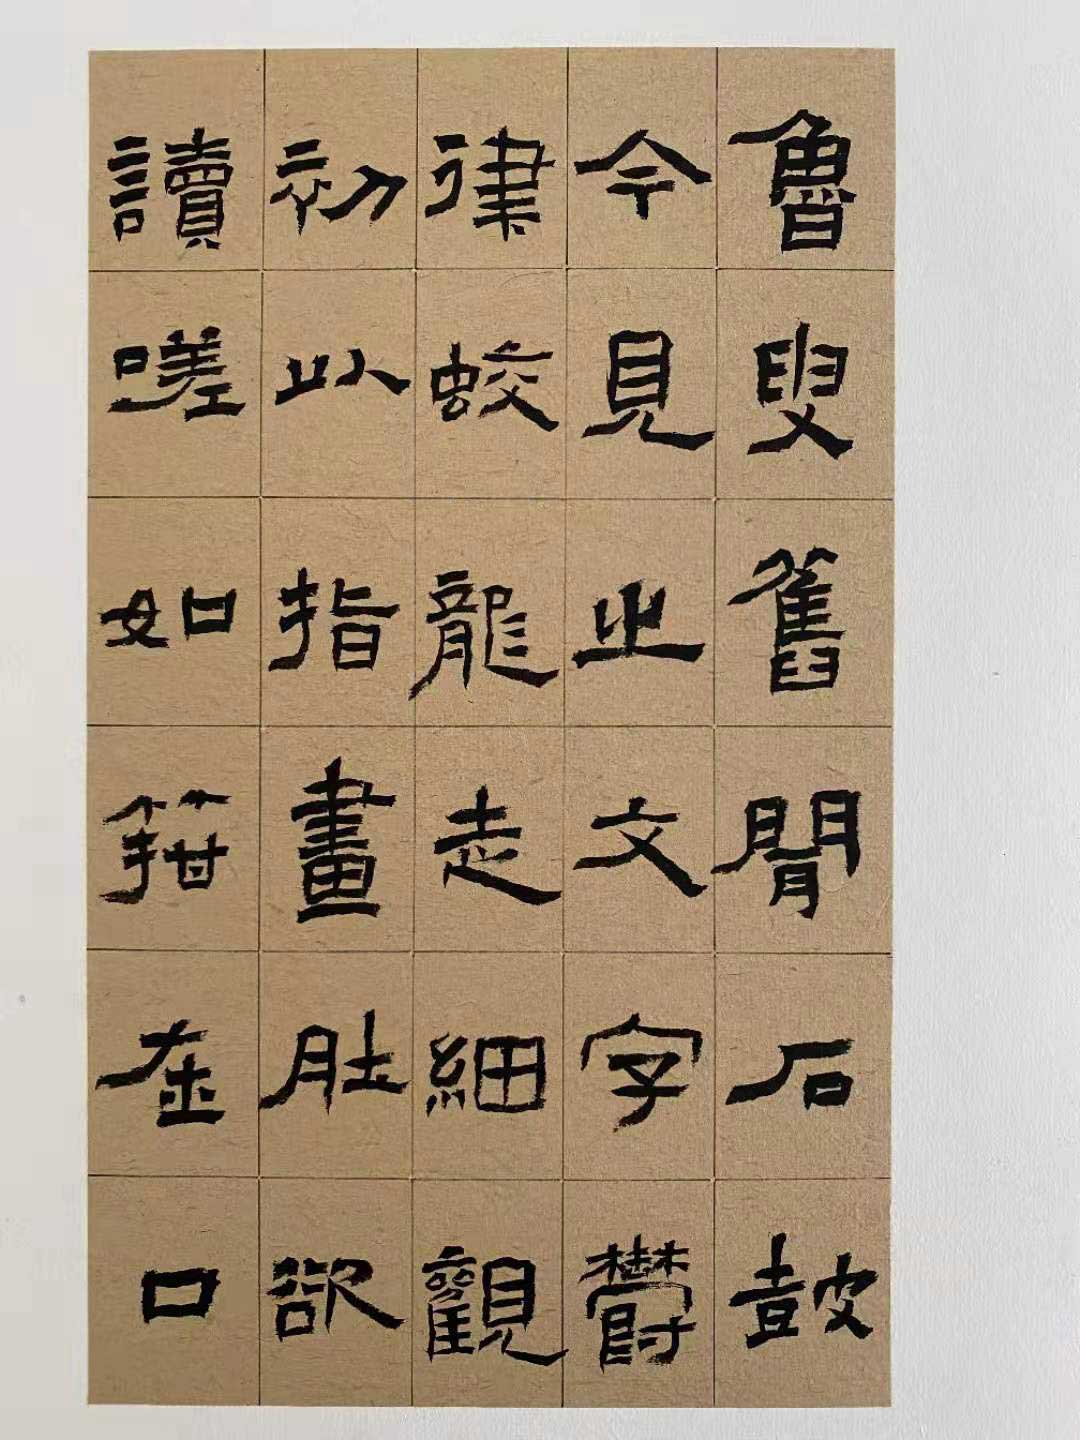 魯叟舊聞石鼓
今見之文字鬱
律蛟龍走細觀
初以指畫肚欲
讀嗟如箝在口